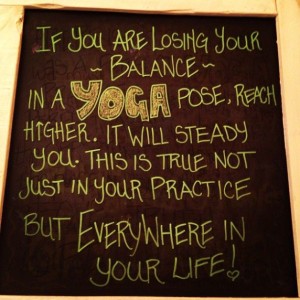 IF YOU ARE LOSING YOUR
~ BALANCE ~
IN A YOGA POSE, REACH
HIGHER. IT WILL STEADY
YOU. THIS IS TRUE NOT
JUST IN YOUR PRACTICE
BUT EVERYWHERE IN
YOUR LIFE!